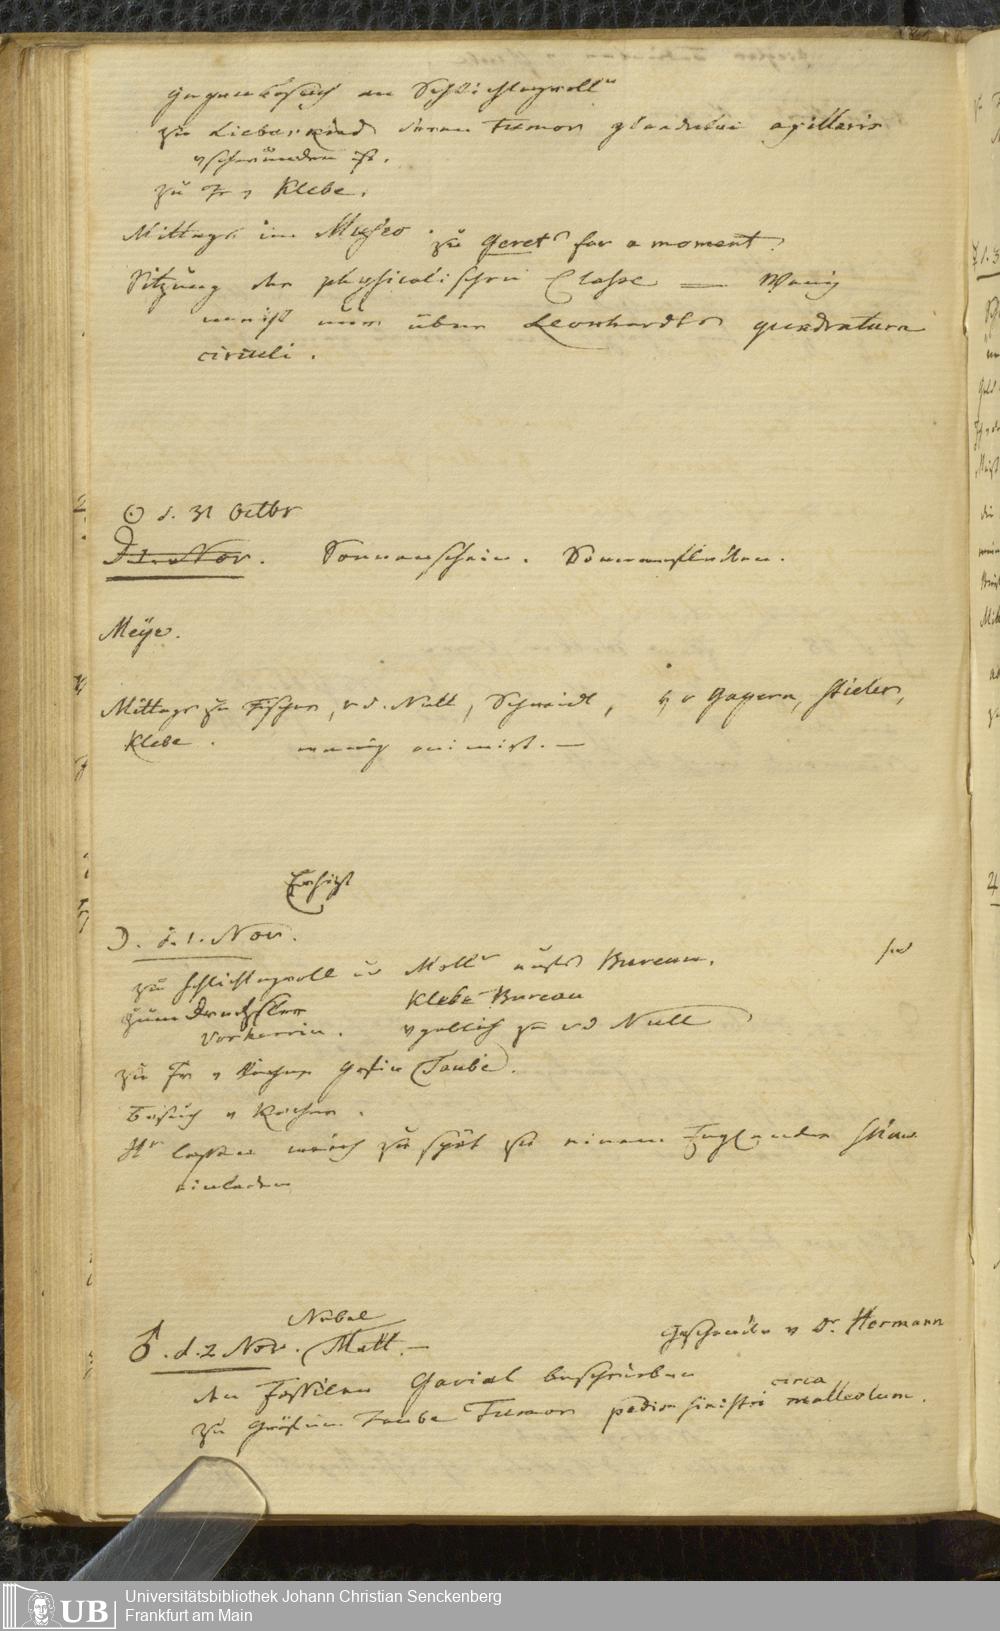 Gegenbesuch an Schlichtegroll
zu Lieberkind deren Tumor glandulae axillaris
verschwunden ist.
zu Fr v Klebe.
Mittags im Museo. zu Geret for a moment.
Sitzung der physicalischen Classe — Wenig
nur über Leonhards quadratura
circuli.
☉ d. 31 Octbr
☽ 1. Nov. Sonnenschein.
Meye.
Mittags zu Fischer, v d. Null, Schmidt, v Gagern, Stieler,
Klebe. wenig animirt. —
Erhizt
☽. d. 1. Nov.
zu Schlichtegroll u Moll ins Bureau.
zum Drechsler Klebe Bureau
vgeblich zu v d Null
zu Fr v Gräfin Taube.
Besuch v
Hr lassen mich zu spät zu einem Engländer Shaw
einladen
Nebel
♂. d. 2 Nov. Matt. — Geschenke v Dr. Hermann
den Fossilen Gavial beschrieben
zu Gräfin Taube Tumor pedis sinistri circa malleolum.
Universitätsbibliothek Johann Christian Senckenberg
Frankfurt am Main
UB